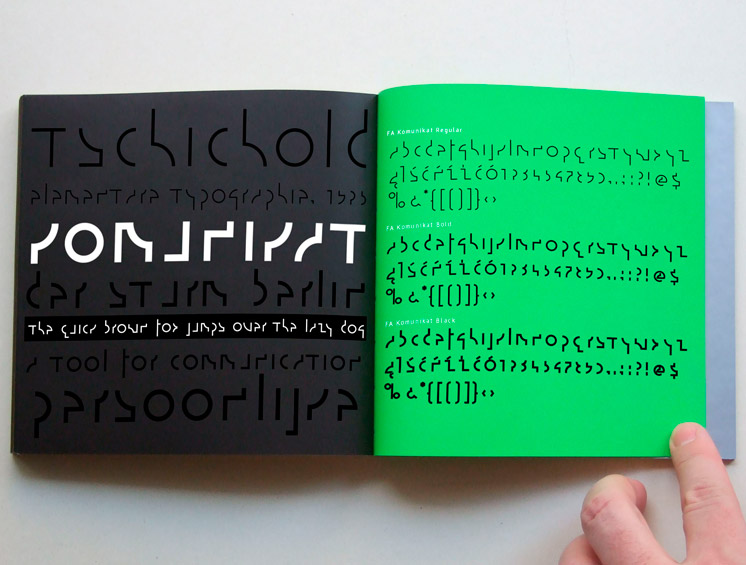 Tschichold
elementare typographie, 1925
komunikat
der sturm berlin
the quick brown fox jumps over the lazy dog
a tool for communication
persoonlijke
FA Komunikat Regular
abcdefghijklmnopqrstuvwxyz
1234567890.,:;?!@$
%&*{[()]}‹›
FA Komunikat Bold
abcdefghijklmnopqrstuvwxyz
1234567890.,:;?!@$
%&*{[()]}‹›
FA Komunikat Black
abcdefghijklmnopqrstuvwxyz
1234567890.,:;?!@$
%&*{[()]}‹›